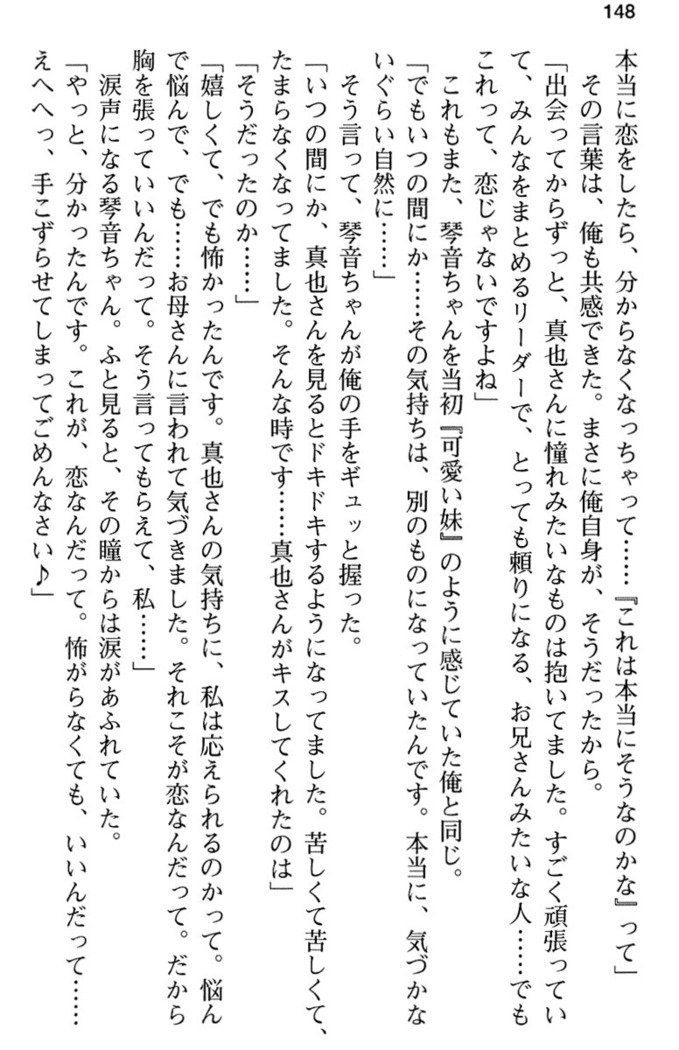 148
本当に恋をしたら、分からなくなっちゃって……『これは本当にそうなのかな』って」
その言葉は、俺も共感できた。まさに俺自身が、そうだったから。
「出会ってからずっと、真也さんに憧れみたいなものは抱いてました。すごく頑張ってい
て、みんなをまとめるリーダーで、とっても頼りになる、お兄さんみたいな人……でも
これって、恋じゃないですよね」
これもまた、琴音ちゃんを当初『可愛い妹』のように感じていた俺と同じ。
「でもいつの間にか……その気持ちは、別のものになっていたんです。本当に、気づかな
いぐらい自然に……」
そう言って、琴音ちゃんが俺の手をギュッと握った。
「いつの間にか、真也さんを見るとドキドキするようになってました。苦しくて苦しくて、
たまらなくなってました。そんな時です……真也さんがキスしてくれたのは」
「そうだったのか……」
「嬉しくて、でも怖かったんです。真也さんの気持ちに、私は応えられるのかって。悩ん
で悩んで、でも……お母さんに言われて気づきました。それこそが恋なんだって。だから
胸を張っていいんだって。そう言ってもらえて、私……」
涙声になる琴音ちゃん。ふと見ると、その瞳からは涙があふれていた。
「やっと、分かったんです。これが、恋なんだって。怖がらなくても、いいんだって……
えへへっ、手こずらせてしまってごめんなさい♪」